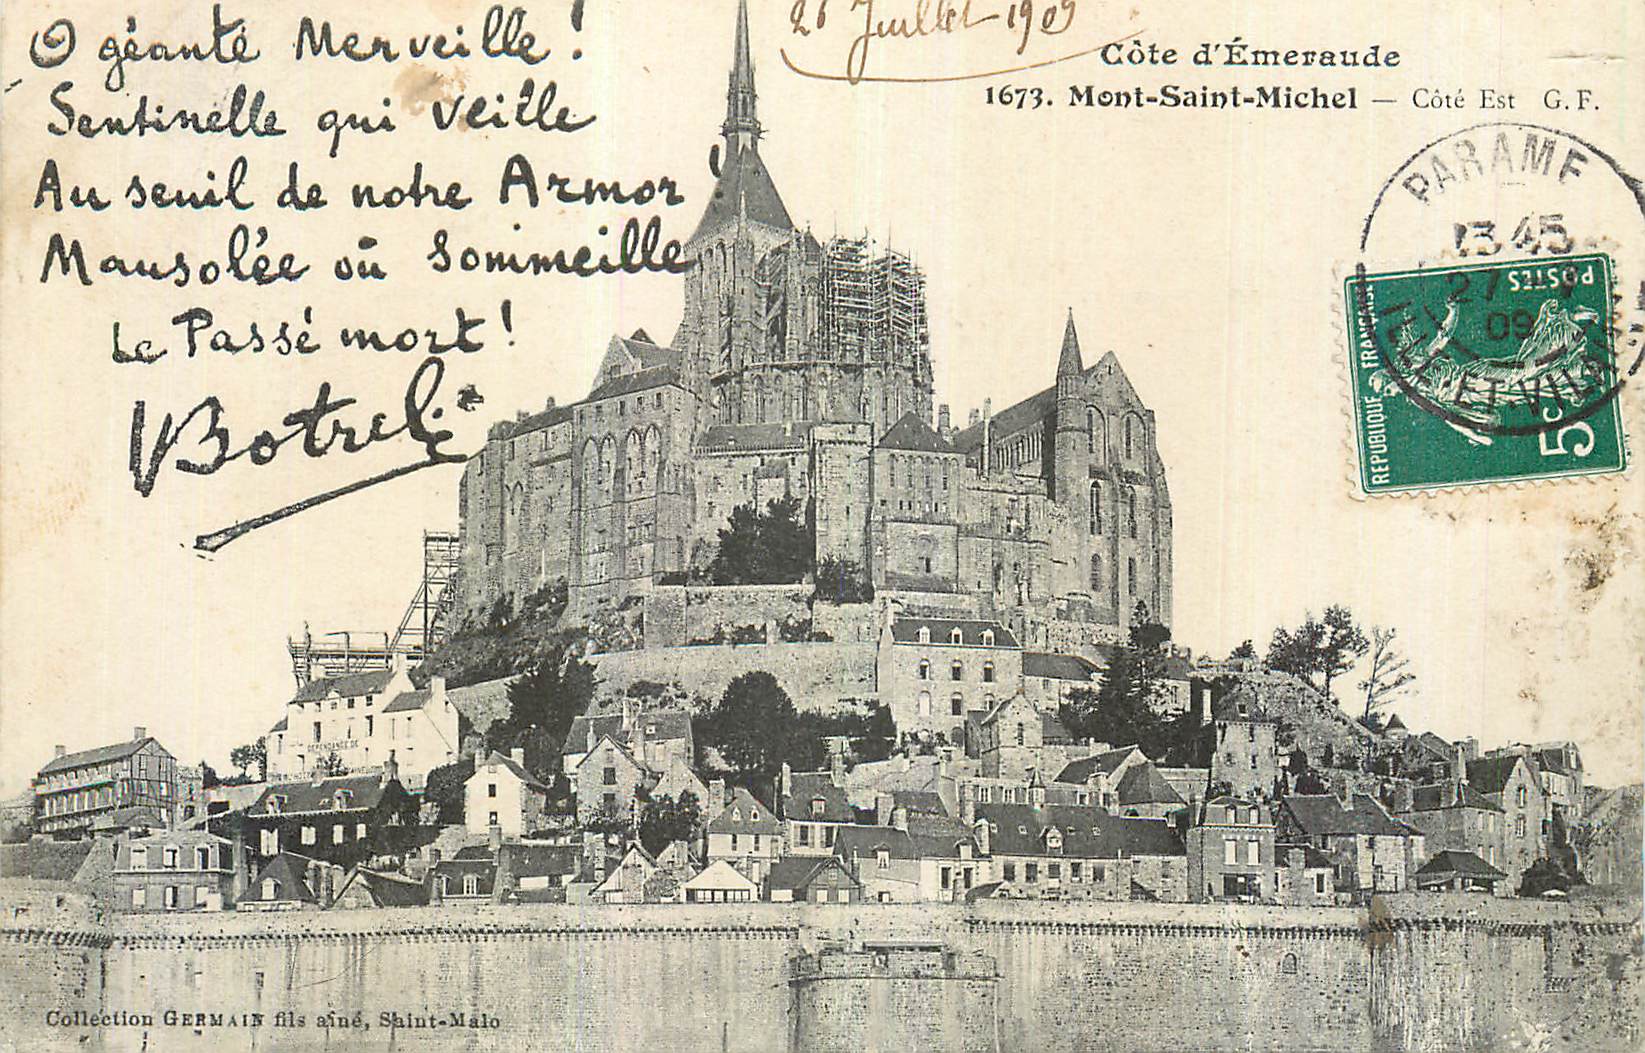 O géante Merveille !
Sentinelle qui veille
Au seuil de notre Armor !
Mausolée où sommeille
Le Passé mort !
Botrel
26 Juillet 1909
Côte d'Émeraude
1673. Mont-Saint-Michel — Côté Est G. F.
PARAME
13 45
27 -7
09
ILLE-ET-VILAINE
REPUBLIQUE FRANÇAISE
POSTES
5c
DEPENDANCE DE
Collection GERMAIN fils aîné, Saint-Malo